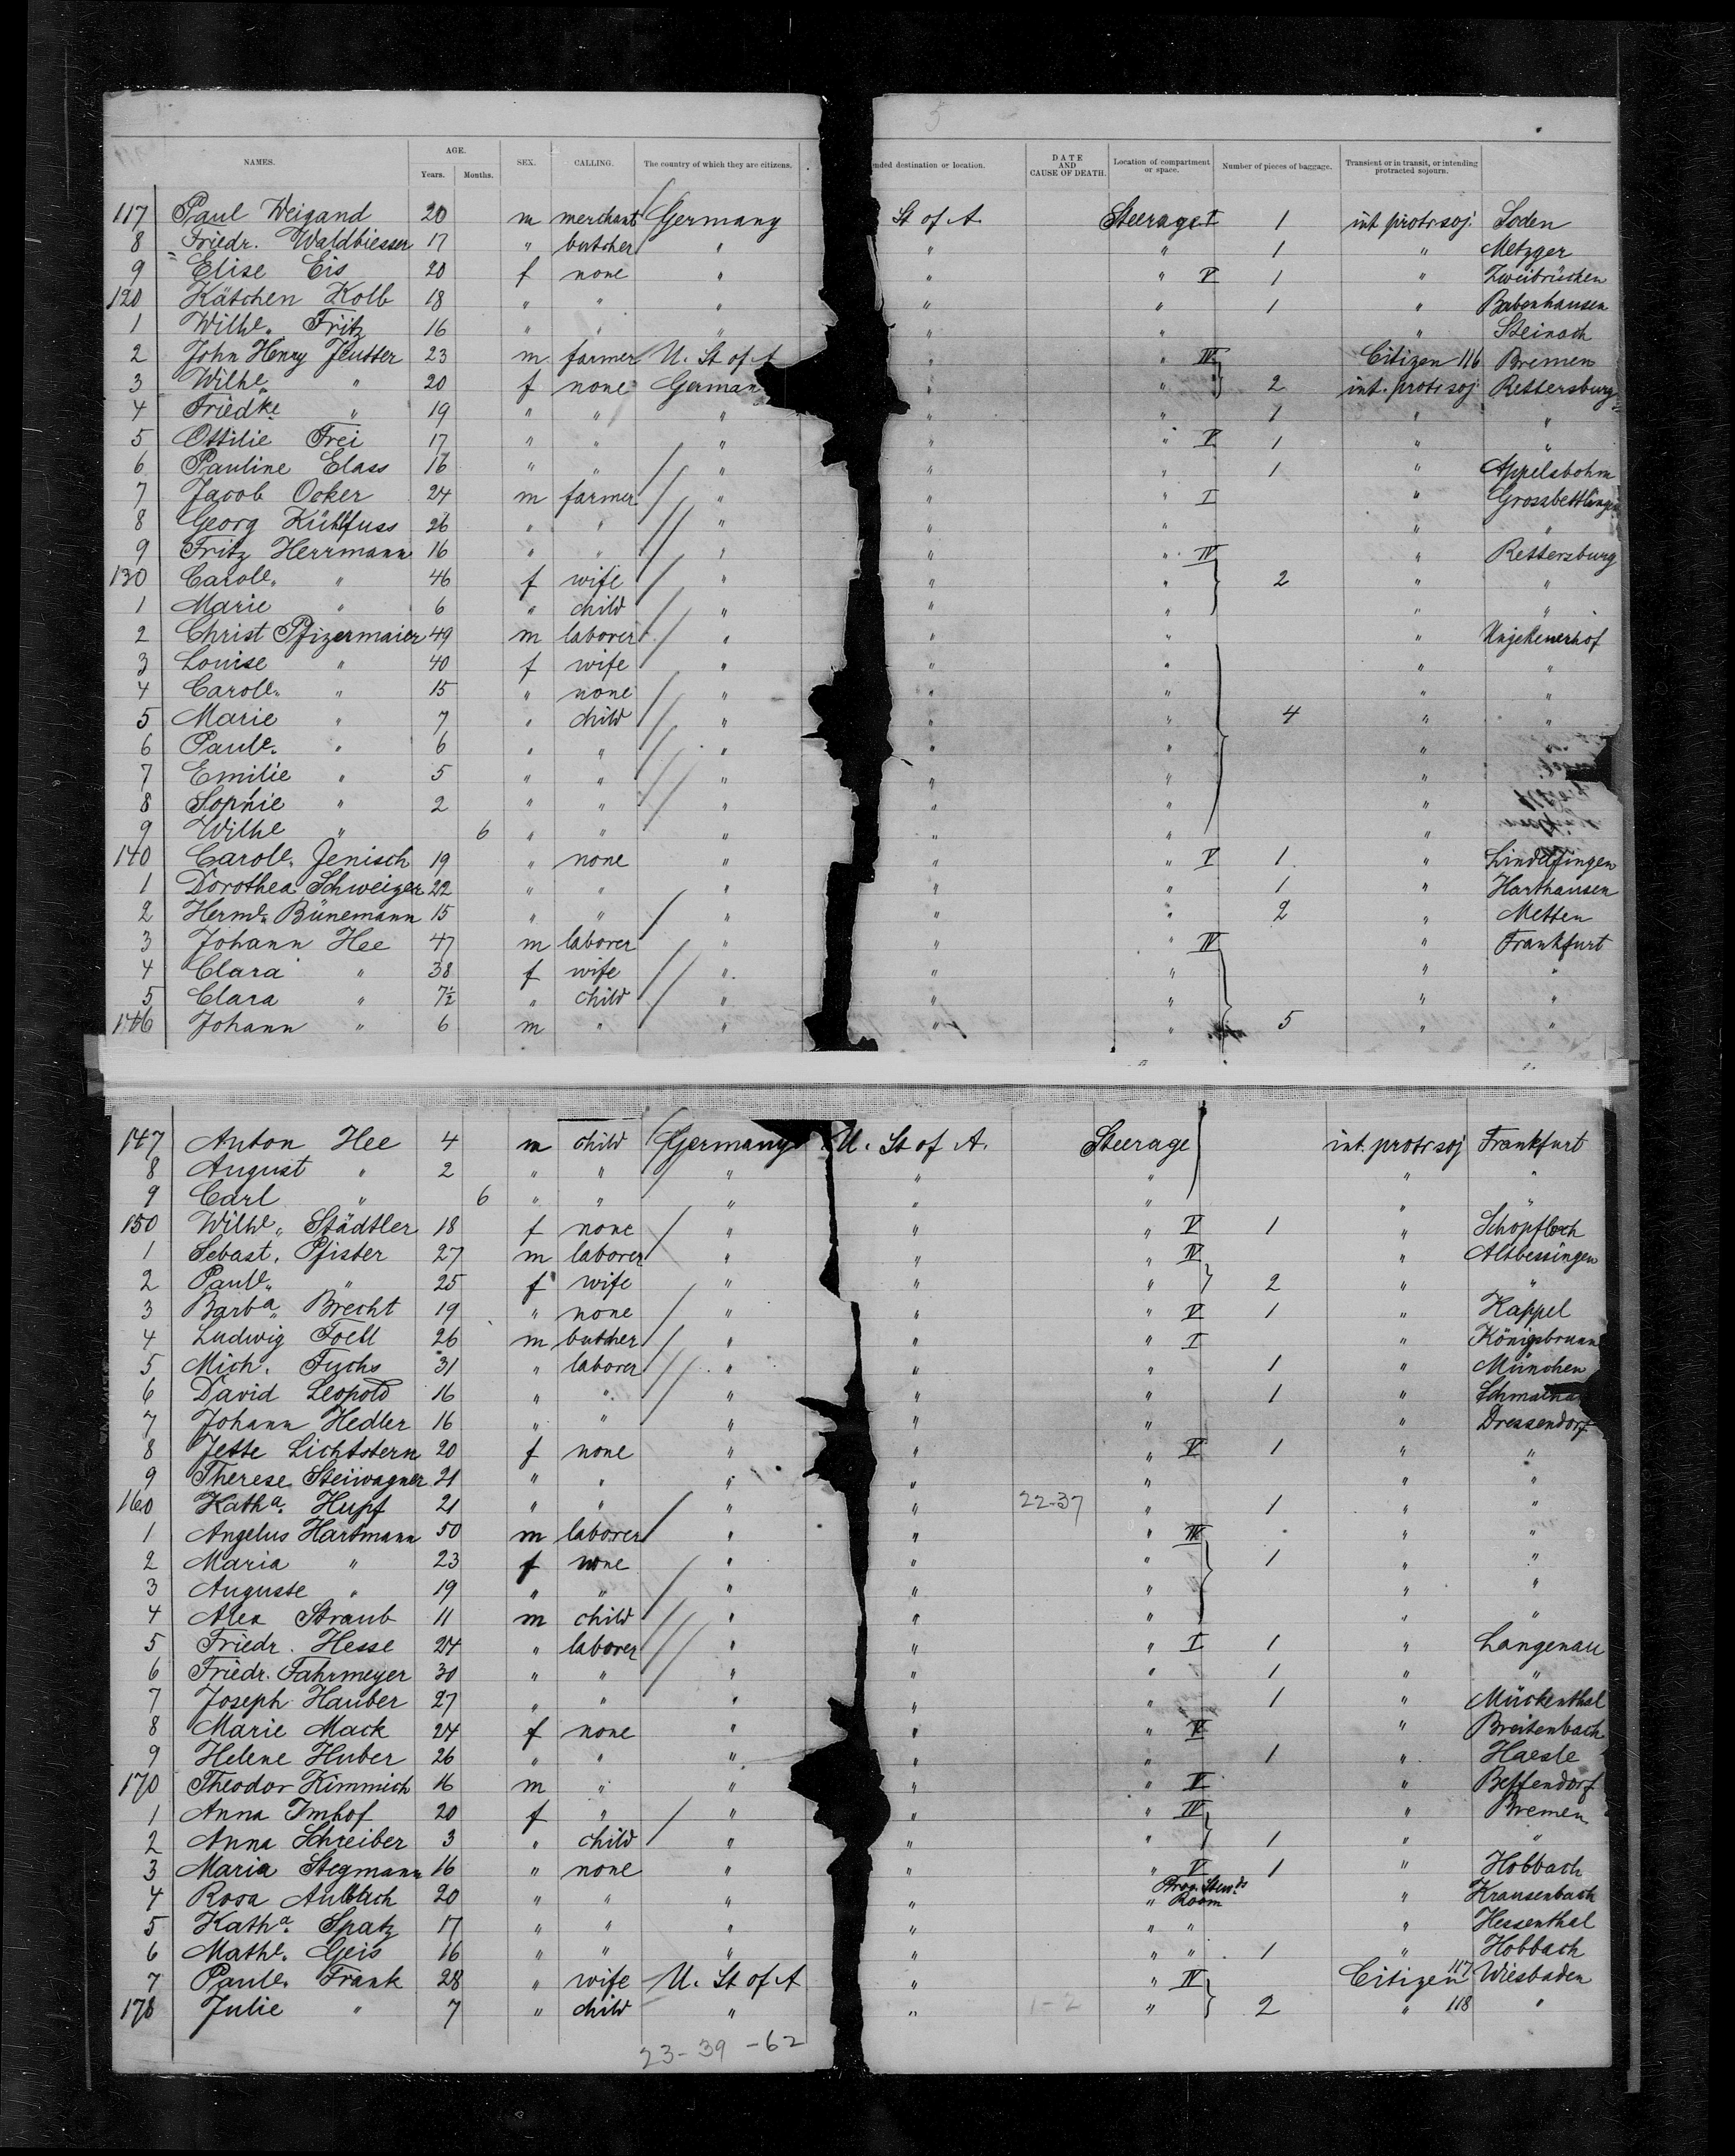 5
NAMES. AGE. Years. Months. SEX. CALLING. The country of which they are citizens. nded destination or location. DATE AND CAUSE OF DEATH. Location of compartment or space. Number of pieces of baggage. Transient or in transit, or intending protracted sojourn.
117 Paul Weigand 20 m merchant Germany St of A. Steerage I 1 int protr soj. Soden
8 Friedr. Waldbiesser 17 " butcher " " " 1 " Metzger
9 Elise Eis 20 f none " " " V 1 " Zweibrücken
120 Kätchen Kolb 18 " " " " " 1 " Babenhausen
1 Wilhe. Fritz 16 " " " " " " Steinach
2 John Henry Jeutter 23 m farmer U. St of A " " IV Citizen 116 Bremen
3 Wilhe " 20 f none German " " 2 int. protr soj Rettersburg
4 Friedke " 19 " " " " " 1 " "
5 Ottilie Frei 17 " " " " " V 1 " "
6 Pauline Elass 16 " " " " " 1 " Appelsbohm
7 Jacob Ocker 24 m farmer " " " I " Grossbettlingen
8 Georg Kühlfuss 26 " " " " " " "
9 Fritz Herrmann 16 " " " " " IV " Rettersburg
130 Carole. " 46 f wife " " " 2 " "
1 Marie " 6 " child " " " " "
2 Christ Pfizermaier 49 m laborer " " " "
3 Louise " 40 f wife " " " " "
4 Carole. " 15 " none " " " " "
5 Marie " 7 " child " " " 4 " "
6 Paule. " 6 " " " " " "
7 Emilie " 5 " " " " " "
8 Sophie " 2 " " " " " "
9 Wilhe " 6 " " " " " "
140 Carole. Jenisch 19 " none " " " V 1 " Lindelfingen
1 Dorothea Schweizer 22 " " " " " 1 " Harthausen
2 Herme. Bünemann 15 " " " " " 2 " Metten
3 Johann Hee 47 m laborer " " " IV " Frankfurt
4 Clara " 38 f wife " " " " "
5 Clara " 7½ " child " " " " "
146 Johann " 6 m " " " " 5 " "
147 Anton Hee 4 m child Germany U. St of A. Steerage int. protr soj Frankfurt
8 August " 2 " " " " " " "
9 Carl " 6 " " " " " " "
150 Wilhe. Städtler 18 f none " " " V 1 " Schopfloch
1 Sebast. Pfister 27 m laborer " " " IV " Altbessingen
2 Paule. " 25 f wife " " " 2 " "
3 Barba. Brecht 19 " none " " " V 1 " Kappel
4 Ludwig Foell 26 m butcher " " " I " Königsbrunn
5 Mich. Fuchs 31 " laborer " " " 1 " München
6 David Leopold 16 " " " " " 1 "
7 Johann Hedler 16 " " " " " " Dressendorf
8 Jette Lichtstern 20 f none " " " V 1 " "
9 Therese Steiwagner 21 " " " " " " "
160 Katha. Hupf 21 " " " " 22-37 " 1 " "
1 Angelus Hartmann 50 m laborer " " " IV " "
2 Maria " 23 f none " " " 1 " "
3 Auguste " 19 " " " " " " "
4 Alex Straub 11 m child " " " " "
5 Friedr. Hesse 24 " laborer " " " I 1 " Langenau
6 Friedr. Fahrmeyer 30 " " " " " 1 " "
7 Joseph Hauber 27 " " " " " 1 " Mückenthal
8 Marie Mack 24 f none " " " V " Breitenbach
9 Helene Huber 26 " " " " " 1 " Haesle
170 Theodor Kimmich 16 m " " " " V " Beffendorf
1 Anna Imhof 20 f " " " " IV " Bremen
2 Anna Schreiber 3 " child " " " 1 " "
3 Maria Stegmann 16 " none " " " V 1 " Hobbach
4 Rosa Aulbach 20 " " " " " Prov. Stew.ds Room " Krausenbach
5 Katha. Spatz 17 " " " " " " " Hessenthal
6 Mathe. Geis 16 " " " " " " 1 " Hobbach
7 Paule. Frank 28 " wife U. St of A " " IV Citizen 117 Wiesbaden
178 Julie " 7 " child " " 1-2 " 2 " 118 "
23-39-62